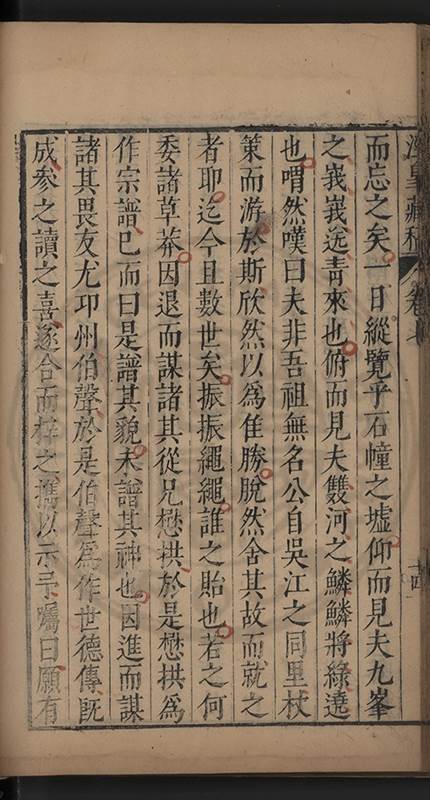 而忘之矣一日縱覽乎石幢之墟仰而見夫九峯
之峩峩送青來也俯而見夫雙河之鱗鱗將綠遶
也喟然嘆曰夫非吾祖無名公自吳江之同里杖
策而游於斯欣然以爲隹勝脫然舍其故而就之
者耶迄今且數世矣振振繩繩誰之貽也若之何
委諸草莽因退而謀諸其從兄懋拱於是懋拱爲
作宗譜已而曰是譜其貌未譜其神也因進而謀
諸其畏友尤卭州伯聲於是伯聲爲作世德傳旣
成參之讀之喜遂合而梓之攜以示予囑曰願有
藏稿 卷七
十四